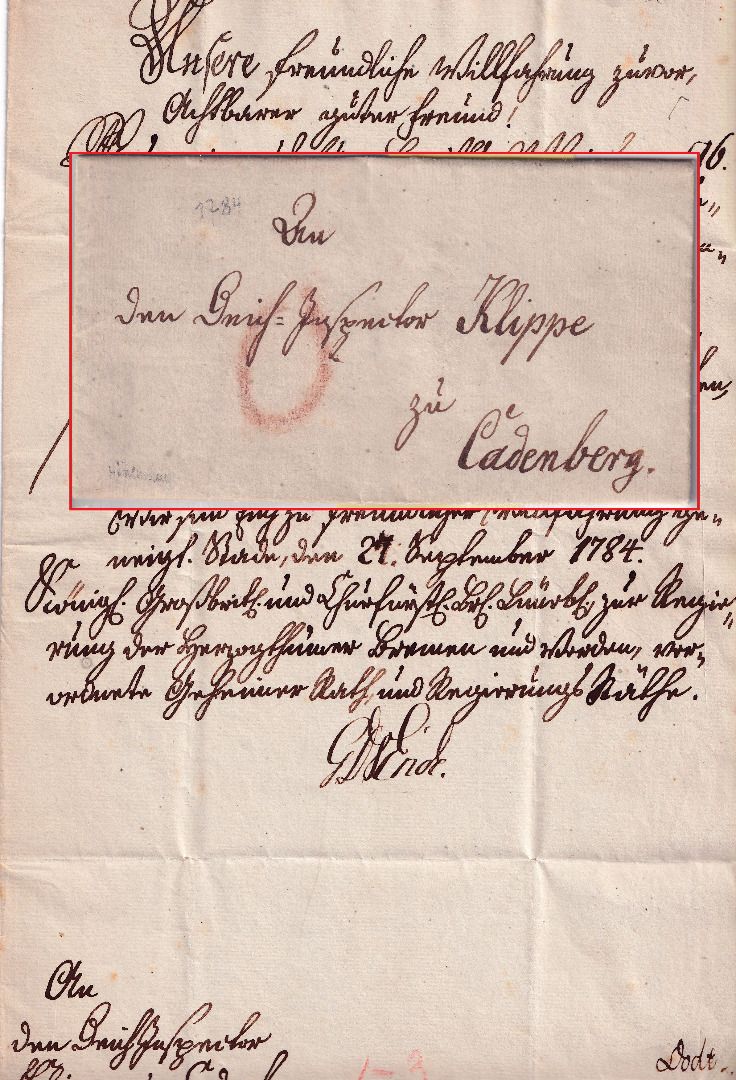 Unsere freundliche Willfahrung zuvor,
Achtbarer guter Freund!
76.
1784
An
den Deich-Inspector Klippe
zu
Cadenberg.
en,
neigt. Stade, den 27. September 1784.
Königl. Großbrit. und Churfürstl. Br. Lünebl. zur Regie-
rung der Herzogthümer Bremen und Verden, ver-
ordnete Geheimer Rath, und Regierungs Räthe.
An
den Deich Inspector
Dodt.